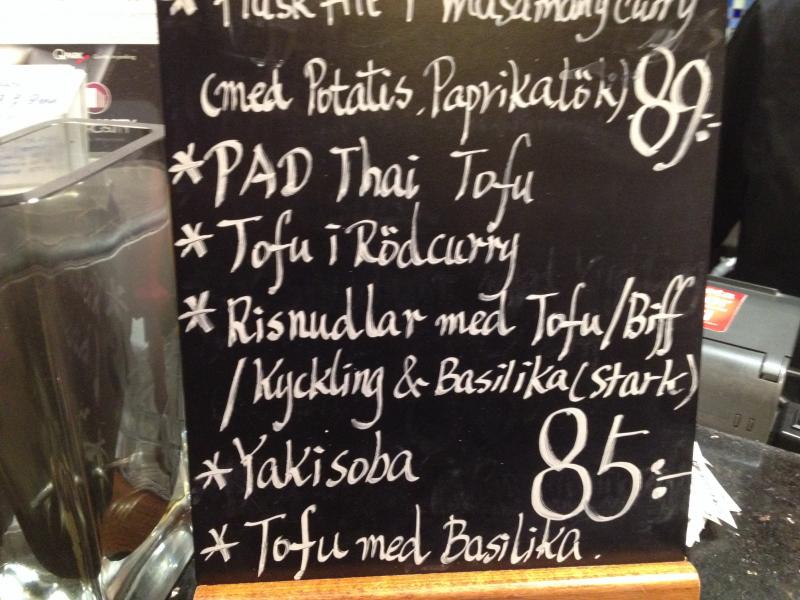 * Fläskfilé i masamang curry
(med Potatis, Paprika, lök) 89:-
* PAD Thai Tofu
* Tofu i Rödcurry
* Risnudlar med Tofu/Biff
/Kyckling & Basilika (stark)
* Yakisoba 85:-
* Tofu med Basilika.